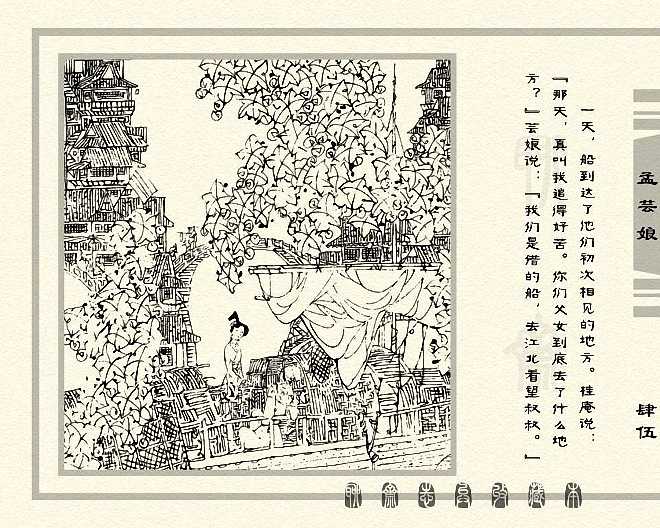 一天，船到达了他们初次相见的地方。桂庵说：
『那天，真叫我追得好苦。你们父女到底去了什么地
方？』芸娘说：『我们是借的船，去江北看望叔叔。』
孟芸娘
肆伍